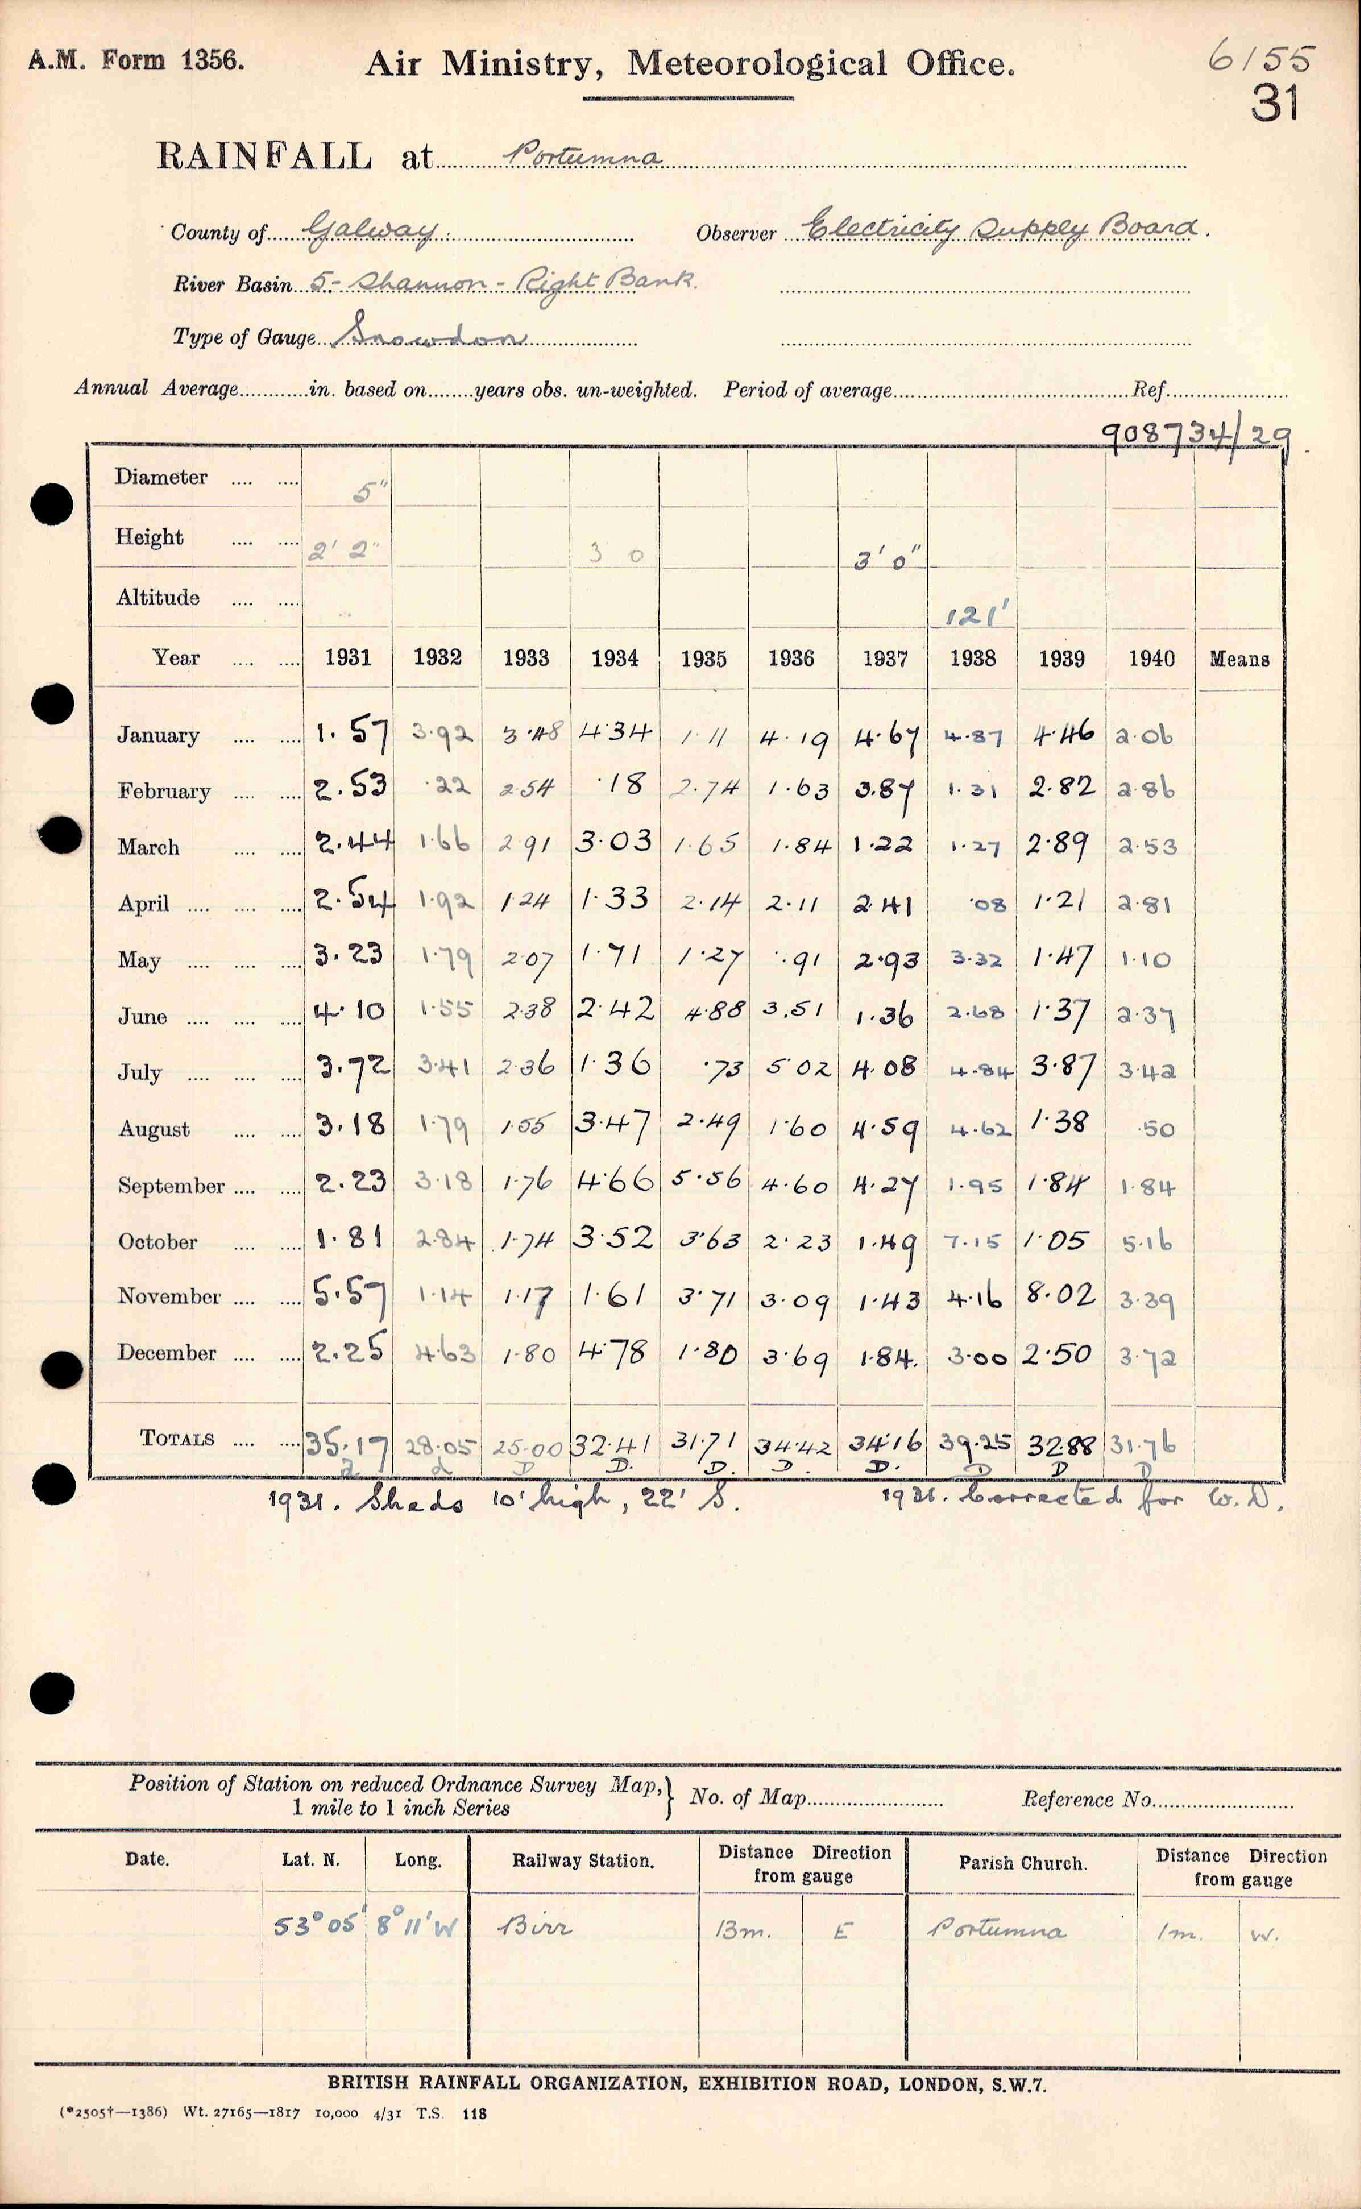 A.M. Form 1356.
Air Ministry, Meteorological Office.
6155
31
RAINFALL at Portumna
County of Galway. Observer Electricity Supply Board.
River Basin 5 - Shannon - Right Bank.
Type of Gauge Snowdon
Annual Average............in. based on........years obs. un-weighted. Period of average............Ref............
908734/29.
Diameter .... .... 5"
Height .... .... 2' 2" 3 0 3' 0"
Altitude .... .... 121'
Year .... .... 1931 1932 1933 1934 1935 1936 1937 1938 1939 1940 Means
January .... .... 1.57 3.92 3.48 4.34 1.11 4.19 4.67 4.87 4.46 2.06
February .... .... 2.53 .22 2.54 .18 2.74 1.63 3.87 1.31 2.82 2.86
March .... .... 2.44 1.66 2.91 3.03 1.65 1.84 1.22 1.27 2.89 2.53
April .... .... .... 2.54 1.92 1.24 1.33 2.14 2.11 2.41 .08 1.21 2.81
May .... .... .... 3.23 1.79 2.07 1.71 1.27 .91 2.93 3.32 1.47 1.10
June .... .... .... 4.10 1.55 2.38 2.42 4.88 3.51 1.36 2.68 1.37 2.37
July .... .... .... 3.72 3.41 2.36 1.36 .73 5.02 4.08 4.84 3.87 3.42
August .... .... 3.18 1.79 1.55 3.47 2.49 1.60 4.59 4.62 1.38 .50
September .... .... 2.23 3.18 1.76 4.66 5.56 4.60 4.27 1.95 1.84 1.84
October .... .... 1.81 2.84 1.74 3.52 3.63 2.23 1.49 7.15 1.05 5.16
November .... .... 5.57 1.14 1.17 1.61 3.71 3.09 1.43 4.16 8.02 3.39
December .... .... 2.25 4.63 1.80 4.78 1.80 3.69 1.84. 3.00 2.50 3.72
TOTALS .... .... 35.17 28.05 25.00 32.41 31.71 34.42 34.16 39.25 32.88 31.76
D D. D. D. D. D D D
1931. Sheds 10' high, 22' S. 1931. Corrected for W.D.
Position of Station on reduced Ordnance Survey Map,} No. of Map............ Reference No............
1 mile to 1 inch Series
Date. Lat. N. Long. Railway Station. Distance Direction Parish Church. Distance Direction
from gauge from gauge
53° 05' 8° 11' W Birr 13m. E Portumna 1m. W.
BRITISH RAINFALL ORGANIZATION, EXHIBITION ROAD, LONDON, S.W.7.
(*2505†—1386) Wt. 27165—1817 10,000 4/31 T.S. 118